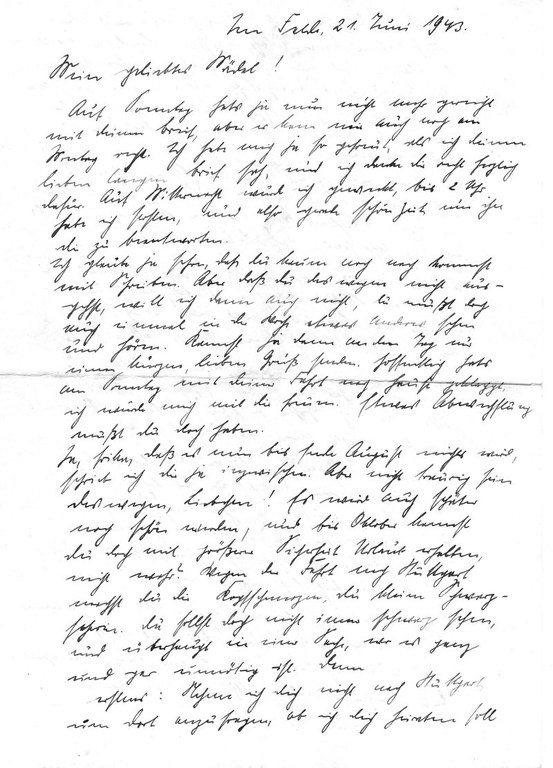 Im Felde, 21. Juni 1943.
Mein geliebtes Mädel!
Auf Sonntag hats ja nun nicht mehr gereicht
mit deinem brief, aber er kam mir auch noch am
Montag recht. Ich habe mich ja so gefreut, als ich deinen
lieben langen brief sah, und ich danke dir recht herzlich
dafür. Auf Mitternacht wurde ich geweckt, bis 2 Uhr
habe ich, und also gerade schön Zeit, um ihn
dir zu beantworten.
Ich glaube ja schon, daß du kaum noch nach kommst
mit Schreiben. Aber daß du deswegen nicht aus-
gehst, will ich dann auch nicht, du mußt doch
auch einmal in der Woche etwas anderes sehen
und hören. Kannst ja dann an dem Tag nur
einen kurzen, lieben Gruß senden. Hoffentlich hats
am Sonntag mit deiner Fahrt nach Hause geklappt,
ich würde mich mit dir freuen. Etwas Abwechslung
mußt du doch haben.
Ja, daß es nun bis Ende August nichts wird,
schrieb ich dir ja inzwischen. Aber nicht traurig sein
deswegen, Liebchen! Es wird auch später
noch schön werden, und bis Oktober kannst
du doch mit größerer Sicherheit Urlaub erhalten,
nicht wahr? Wegen der Fahrt nach Stuttgart
machst du dir Kopfschmerzen, du kleine Schwarz-
seherin. Du sollst doch nicht immer schwarz sehen,
und überhaupt in einer Sache, wo es ganz
und gar unnötig ist. Denn
erstens: Nehme ich dich nicht nach Stuttgart,
um dort anzufragen, ob ich dich heiraten soll